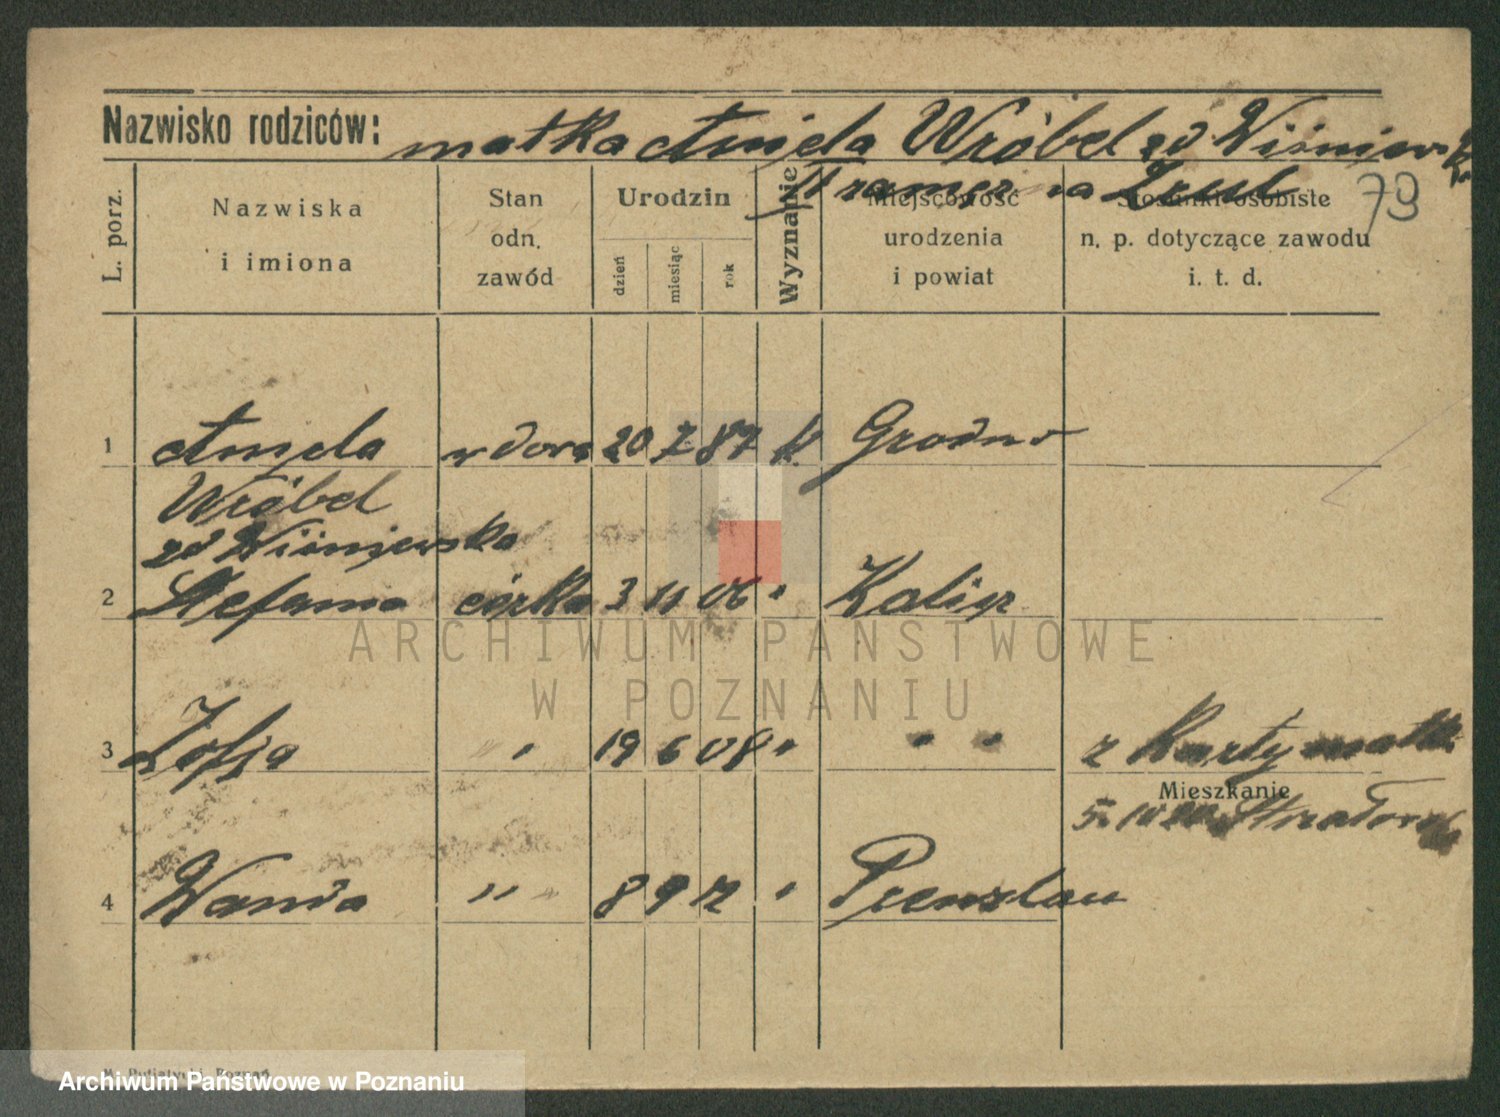 Nazwisko rodziców: matka Aniela Wróbel zd Wiśniewska
79
L. porz.
Nazwiska
i imiona
Stan
odn.
zawód
Urodzin
dzień
miesiąc
rok
Wyznanie
Miejscowość
urodzenia
i powiat
Stosunki osobiste
n. p. dotyczące zawodu
i. t. d.
1 Aniela wdowa 20 7 87 k Grodno
Wróbel
zd Wiśniewska
2 Stefania córka 3 11 06 " Kalisz
3 Zofja " 19 6 08 " " " z karty matki
Mieszkanie
4 Wanda " 8 9 12 " Prenzlau
ARCHIWUM PAŃSTWOWE
W POZNANIU
Poznań
Archiwum Państwowe w Poznaniu